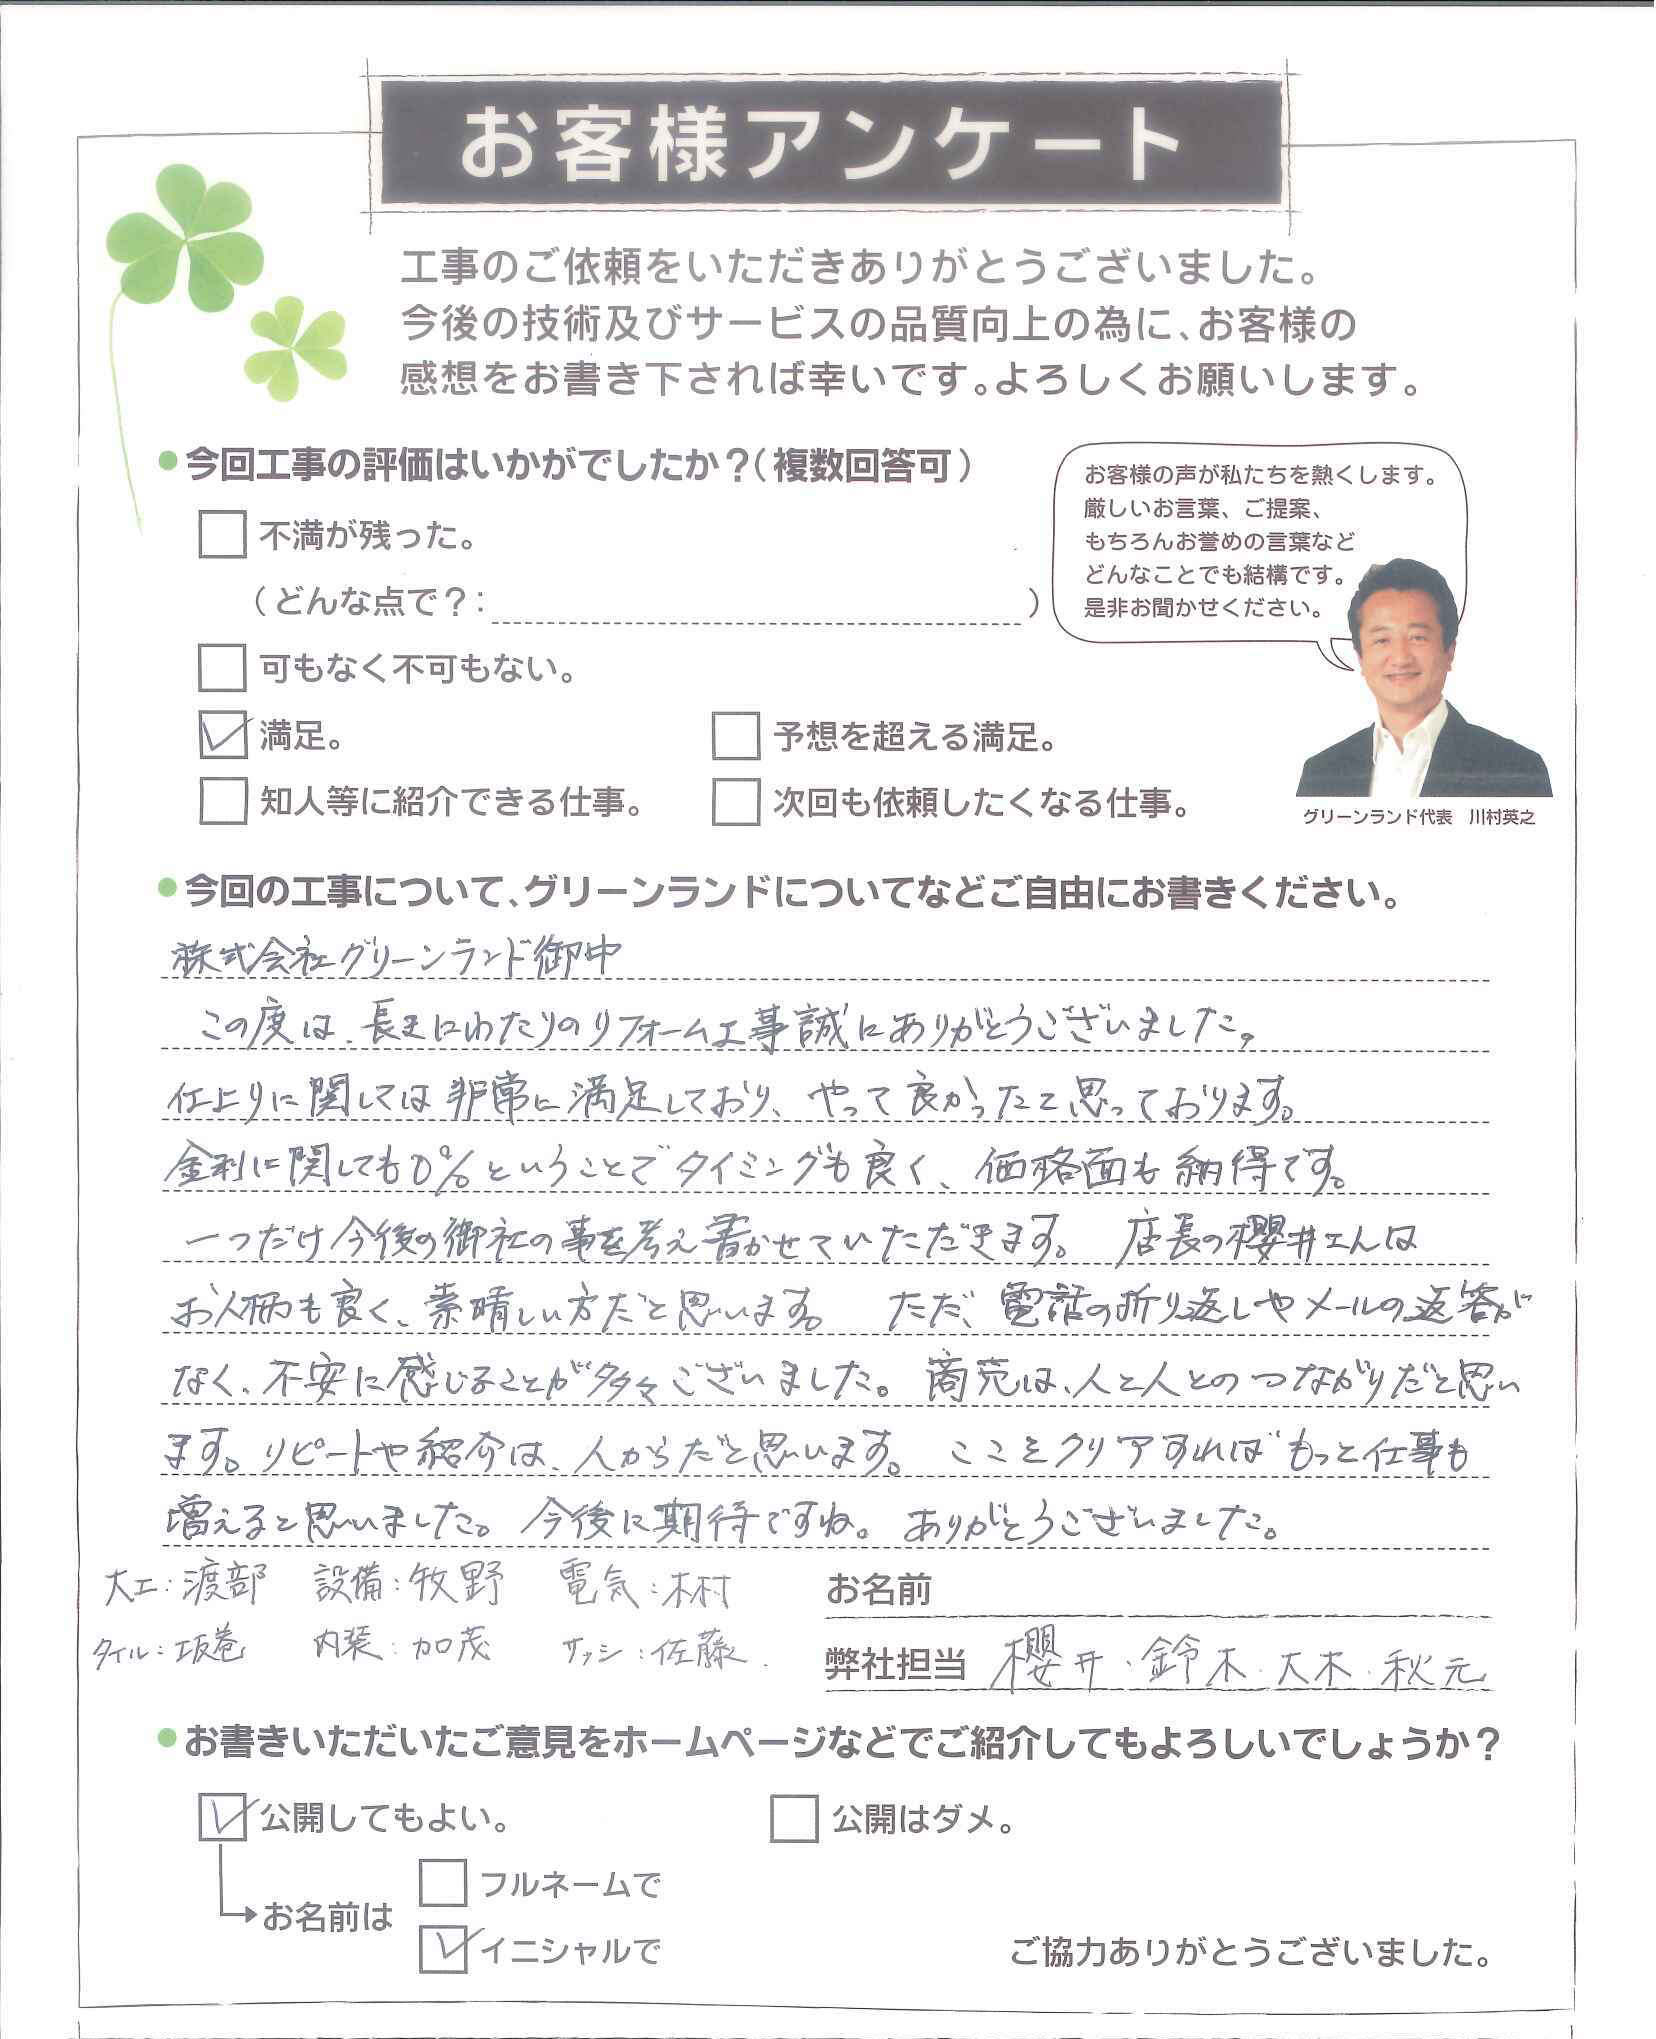 お客様アンケート
工事のご依頼をいただきありがとうございました。
今後の技術及びサービスの品質向上の為に、お客様の
感想をお書き下されば幸いです。よろしくお願いします。
今回工事の評価はいかがでしたか？（複数回答可）
お客様の声が私たちを熱くします。
厳しいお言葉、ご提案、
もちろんお誉めの言葉など
どんなことでも結構です。
是非お聞かせください。
不満が残った。
（どんな点で？： ）
可もなく不可もない。
満足。 予想を超える満足。
知人等に紹介できる仕事。 次回も依頼したくなる仕事。
グリーンランド代表 川村英之
今回の工事について、グリーンランドについてなどご自由にお書きください。
株式会社グリーンランド御中
この度は、長きにわたりのリフォーム工事誠にありがとうございました。
仕上りに関しては非常に満足しており、やって良かったと思っております。
金利に関しても0%ということでタイミングも良く、価格面も納得です。
一つだけ今後の御社の事を考え書かせていただきます。 店長の櫻井さんは
お人柄も良く、素晴しい方だと思います。 ただ、電話の折り返しやメールの返答が
なく、不安に感じることが多々ございました。商売は、人と人とのつながりだと思い
ます。リピートや紹介は、人からだと思います。 ここをクリアすればもっと仕事も
増えると思いました。今後に期待ですね。ありがとうございました。
大工：渡部 設備：牧野 電気：木村
お名前
タイル：坂巻 内装：加茂 サッシ：佐藤
弊社担当 櫻井・鈴木・大木・秋元
お書きいただいたご意見をホームページなどでご紹介してもよろしいでしょうか？
公開してもよい。 公開はダメ。
お名前は
フルネームで
イニシャルで
ご協力ありがとうございました。